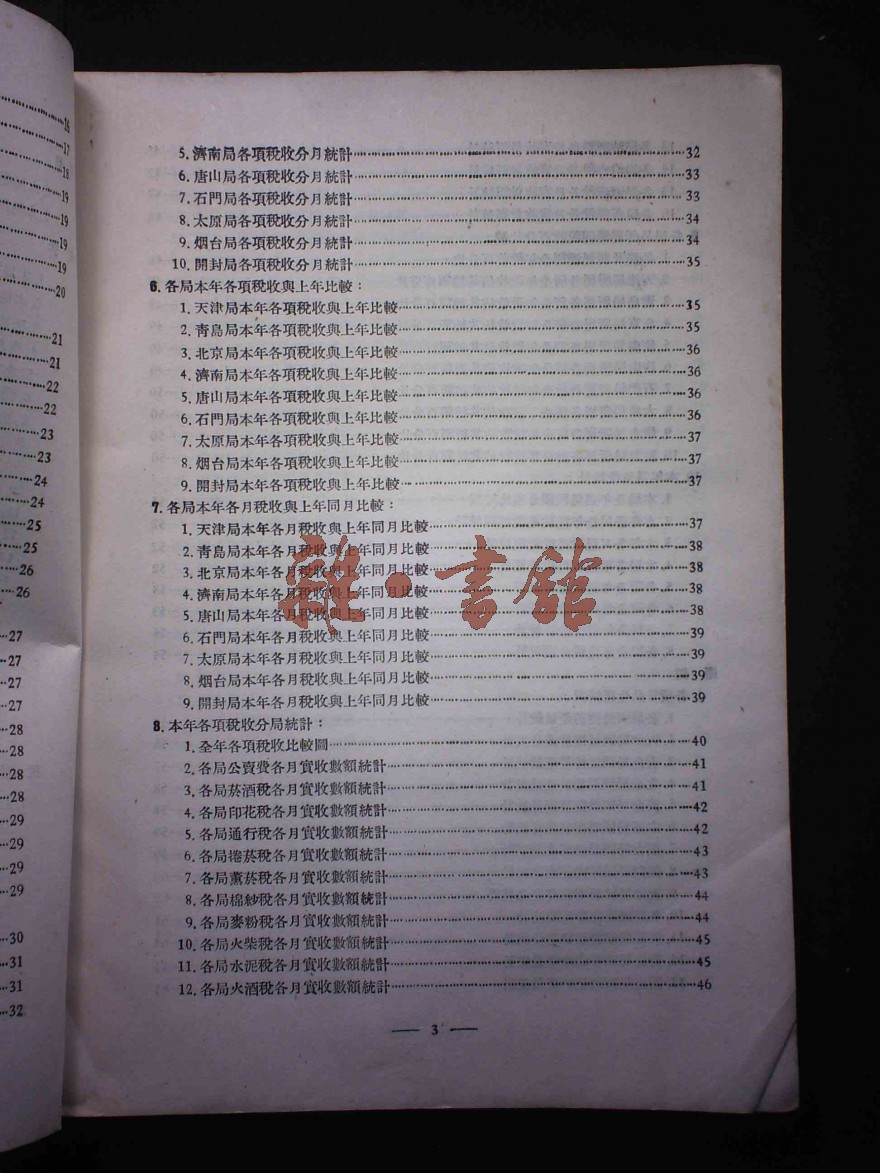 16
17
18
19
19
19
19
20
21
21
22
22
23
23
24
24
25
25
26
26
27
27
27
27
28
28
28
28
29
29
29
29
30
31
31
32
5. 濟南局各項稅收分月統計 32
6. 唐山局各項稅收分月統計 33
7. 石門局各項稅收分月統計 33
8. 太原局各項稅收分月統計 34
9. 烟台局各項稅收分月統計 34
10. 開封局各項稅收分月統計 35
6. 各局本年各項稅收與上年比較：
1. 天津局本年各項稅收與上年比較 35
2. 靑島局本年各項稅收與上年比較 35
3. 北京局本年各項稅收與上年比較 36
4. 濟南局本年各項稅收與上年比較 36
5. 唐山局本年各項稅收與上年比較 36
6. 石門局本年各項稅收與上年比較 36
7. 太原局本年各項稅收與上年比較 37
8. 烟台局本年各項稅收與上年比較 37
9. 開封局本年各項稅收與上年比較 37
7. 各局本年各月稅收與上年同月比較：
1. 天津局本年各月稅收與上年同月比較 37
2. 靑島局本年各月稅收與上年同月比較 38
3. 北京局本年各月稅收與上年同月比較 38
4. 濟南局本年各月稅收與上年同月比較 38
5. 唐山局本年各月稅收與上年同月比較 38
6. 石門局本年各月稅收與上年同月比較 39
7. 太原局本年各月稅收與上年同月比較 39
8. 烟台局本年各月稅收與上年同月比較 39
9. 開封局本年各月稅收與上年同月比較 39
8. 本年各項稅收分局統計：
1. 全年各項稅收比較圖 40
2. 各局公賣費各月實收數額統計 41
3. 各局菸酒稅各月實收數額統計 41
4. 各局印花稅各月實收數額統計 42
5. 各局通行稅各月實收數額統計 42
6. 各局捲菸稅各月實收數額統計 43
7. 各局薰菸稅各月實收數額統計 43
8. 各局棉紗稅各月實收數額統計 44
9. 各局麥粉稅各月實收數額統計 44
10. 各局火柴稅各月實收數額統計 45
11. 各局水泥稅各月實收數額統計 45
12. 各局火酒稅各月實收數額統計 46
— 3 —
雜·書館